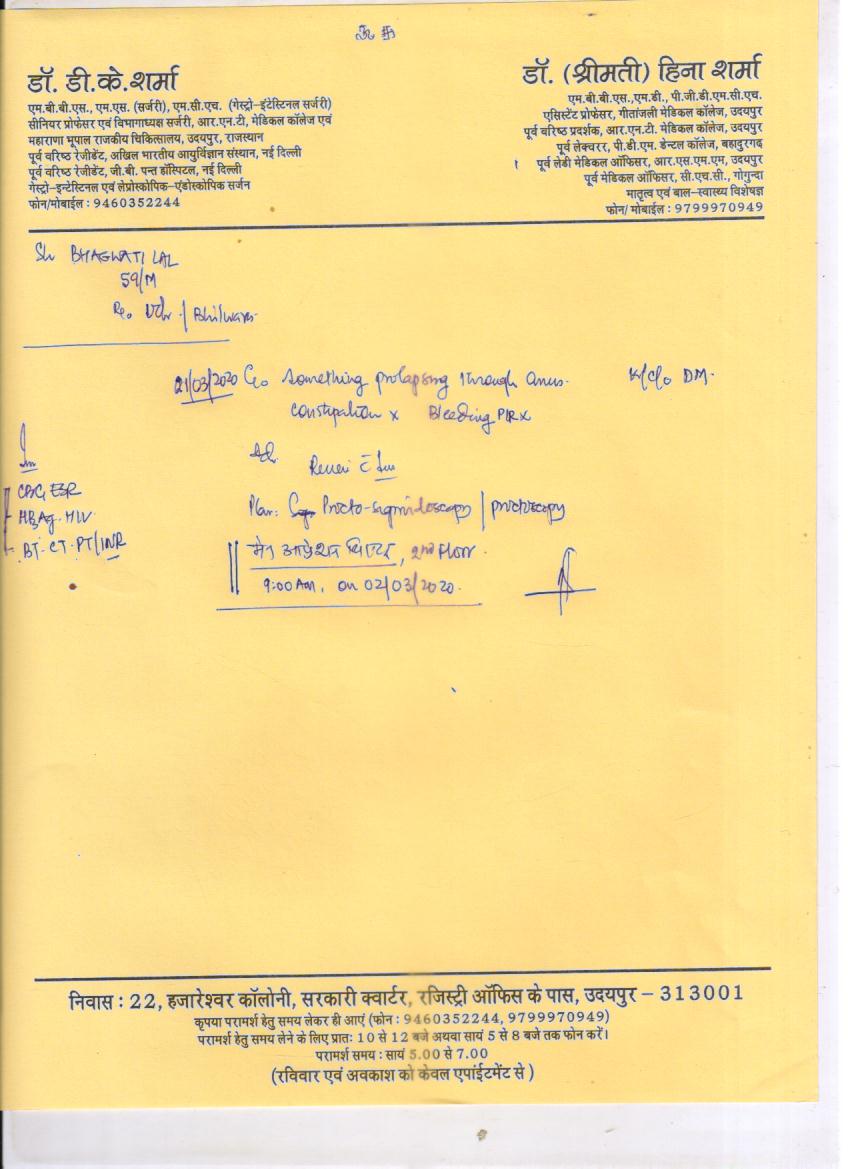 डॉ. डी.के.शर्मा
एम.बी.बी.एस., एम.एस. (सर्जरी), एम.सी.एच. (गेस्ट्रो-इंटेस्टिनल सर्जरी)
सीनियर प्रोफेसर एवं विभागाध्यक्ष सर्जरी, आर.एन.टी, मेडिकल कॉलेज एवं
महाराणा भूपाल राजकीय चिकित्सालय, उदयपुर, राजस्थान
पूर्व वरिष्ठ रेजीडेंट, अखिल भारतीय आयुर्विज्ञान संस्थान, नई दिल्ली
पूर्व वरिष्ठ रेजीडेंट, जी.बी. पन्त हॉस्पिटल, नई दिल्ली
गेस्ट्रो-इन्टेस्टिनल एवं लेप्रोस्कोपिक-एंडोस्कोपिक सर्जन
फोन/मोबाईल : 9460352244
डॉ. (श्रीमती) हिना शर्मा
एम.बी.बी.एस.,एम.डी., पी.जी.डी.एम.सी.एच.
एसिस्टेंट प्रोफेसर, गीतांजली मेडिकल कॉलेज, उदयपुर
पूर्व वरिष्ठ प्रदर्शक, आर.एन.टी. मेडिकल कॉलेज, उदयपुर
पूर्व लेक्चरर, पी.डी.एम. डेन्टल कॉलेज, बहादुरगढ़
पूर्व लेडी मेडिकल ऑफिसर, आर.एस.एम.एम, उदयपुर
पूर्व मेडिकल ऑफिसर, सी.एच.सी., गोगुन्दा
मातृत्व एवं बाल-स्वास्थ्य विशेषज्ञ
फोन/ मोबाईल : 9799970949
Sh BHAGWATI LAL
59/M
/ Bhilwara
21/03/2020 C/o Something prolapsing through anus. K/C/o DM.
Constipation x Bleeding P/R x
CBC, ESR
HBsAg. HIV
BT-CT-PT/INR
Plan: Procto-sigmoidoscopy / proctoscopy
मेन आपरेशन थियेटर, 2nd Floor.
9:00 Am, on 02/03/2020.
निवास : 22, हजारेश्वर कॉलोनी, सरकारी क्वार्टर, रजिस्ट्री ऑफिस के पास, उदयपुर – 313001
कृपया परामर्श हेतु समय लेकर ही आएं (फोन : 9460352244, 9799970949)
परामर्श हेतु समय लेने के लिए प्रातः 10 से 12 बजे अथवा सायं 5 से 8 बजे तक फोन करें।
परामर्श समय : सायं 5.00 से 7.00
(रविवार एवं अवकाश को केवल एपांईटमेंट से )